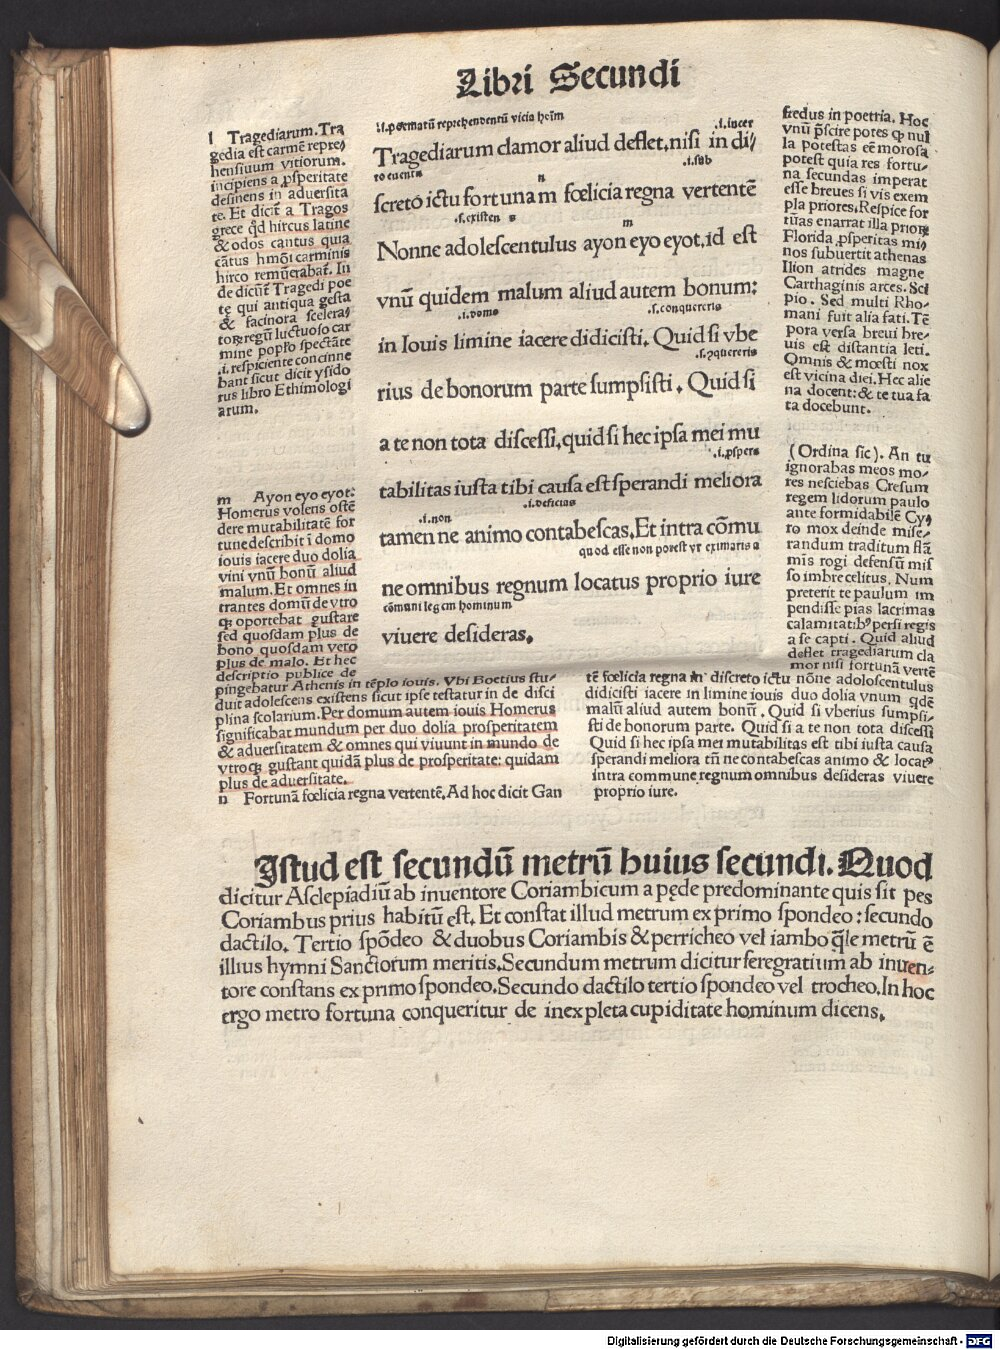 Libri Secundi
l Tragediarum. Tra
gedia est carmē repre/
hensiuum vitiorum.
incipiens a ꝓsperitate
desinens in aduersita
te. Et dicit̄ a Tragos
grece qd̄ hircus latine
& odos cantus quia
cātus hmōi carminis
hirco remūerabat̄. In
de dicūt̄ Tragedi poe
te qui antiqua gesta
& facinora scelera/
toꝝ regū luctuoso car
mine popło spectāte
.i. respiciente concinne
bant sicut dicit ysido
rus libro Ethimologi
arum.
m Ayon eyo eyot:
Homerus volens oste
dere mutabilitatē for
tune describit ī domo
iouis iacere duo dolia
vini vnū bonū aliud
malum. Et omnes in
trantes domū de vtro
qꝫ oportebat gustare
sed quosdam plus de
bono quosdam vero
plus de malo. Et hec
descriptio publice de
pingebatur Athenis in tēplo iouis. Vbi Boetius stu/
duit adolescens existens sicut ipse testatur in de disci
plina scolarium. Per domum autem iouis Homerus
significabat mundum per duo dolia prosperitatem
& aduersitatem & omnes qui viuunt in mundo de
vtroqꝫ gustant quidā plus de prosperitate: quidam
plus de aduersitate.
n Fortunā fœlicia regna vertentē. Ad hoc dicit Gan
.i. poematū reprehendentū vicia hoīm
.i. incer
Tragediarum clamor aliud deflet, nisi in di/
to euentu n .i. sub
screto ictu fortunam fœlicia regna vertentē
.s. existens m
Nonne adolescentulus ayon eyo eyot, id est
vnū quidem malum aliud autem bonum:
.i. domo .s. conquereris
in Iouis limine iacere didicisti. Quid si vbe
.s. ꝯquereris
rius de bonorum parte sumpsisti. Quid si
a te non tota discessi, quid si hec ipsa mei mu
.i. ꝓspera
tabilitas iusta tibi causa est sperandi meliora
.i. non .i. deficias
tamen ne animo contabescas. Et intra cōmu
quod esse non potest vt eximaris a
ne omnibus regnum locatus proprio iure
cōmuni legem hominum
viuere desideras.
fredus in poetria. Hoc
vnū p̄scire potes qꝫ nul
la potestas eē morosa
potest quia res fortu/
na secundas imperat
esse breues si vis exem
pla priores. Respice for
tūas enarrat illa prioꝝ
Florida ꝓsperitas mi/
nos subuertit athenas
Ilion atrides magne
Carthaginis arces. Sci
pio. Sed multi Rho/
mani fuit alia fati. Tē
pora versa breui bre/
uis est distantia leti.
Omnis & mœsti nox
est vicina diei. Hec alie
na docent: & te tua fa
ta docebunt.
(Ordina sic). An tu
ignorabas meos mo/
res nesciebas Cresum
regem lidorum paulo
ante formidabilē Cy/
ro mox deinde mise/
randum traditum flā
mis rogi defensū mis
so imbre celitus. Num
preterit te paulum im
pendisse pias lacrimas
calamitatibꝰ persi regis
a se capti. Quid aliud
deflet tragediarum cla
mor nisi fortunā vertē
tē fœlicia regna in discreto ictu nōne adoloscentulus
didicisti iacere in limine iouis duo dolia vnum qdē
malū aliud autem bonū. Quid si vberius sumpsi/
sti de bonorum parte. Quid si a te non tota discessi
Quid si hec ipsa mei mutabilitas est tibi iusta causa
sperandi meliora tn̄ ne contabescas animo & locatꝰ
intra commune regnum omnibus desideras viuere
proprio iure.
Istud est secundū metrū huius secundi. Quod
dicitur Asclepiadiū ab inuentore Coriambicum a pede predominante quis sit pes
Coriambus prius habitū est. Et constat illud metrum ex primo spondeo: secundo
dactilo. Tertio spōdeo & duobus Coriambis & perricheo vel iambo q̄le metrū ē
illius hymni Sanctorum meritis. Secundum metrum dicitur feregratium ab inuen-
tore constans ex primo spondeo. Secundo dactilo tertio spondeo vel trocheo. In hoc
ergo metro fortuna conqueritur de inexpleta cupiditate hominum dicens.
Digitalisierung gefördert durch die Deutsche Forschungsgemeinschaft - DFG